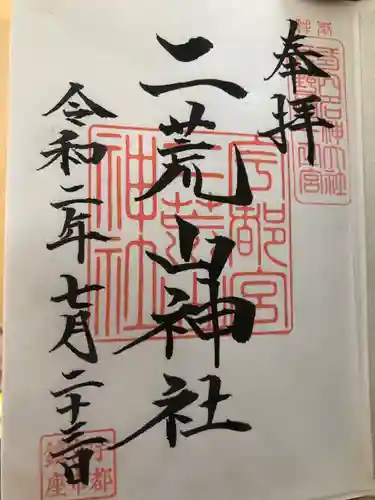 奉拝
二荒山神社
宇都宮
二荒山
神社
令和二年七月二十三日